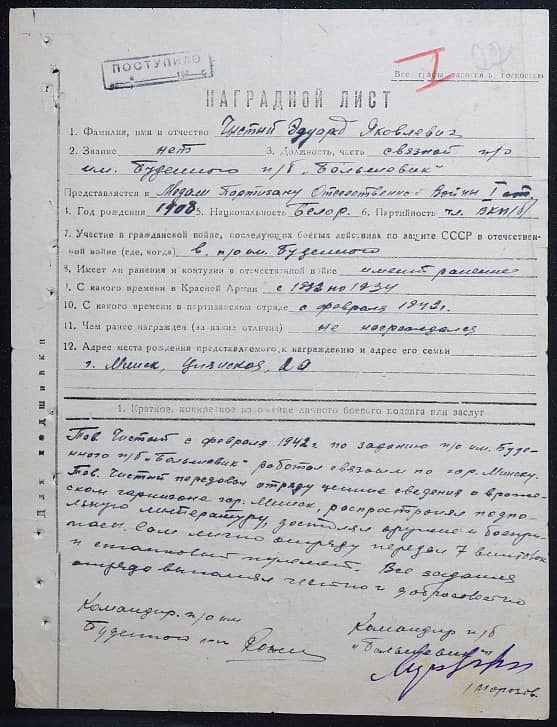 ПОСТУПИЛО
I
Все графы заполнять полностью
НАГРАДНОЙ ЛИСТ
1. Фамилия, имя и отчество Чистый Эдуард Яковлевич
2. Звание нет 3. Должность, часть связной п/о
им. Буденного п/б "Большовик"
Представляется к Медали Партизану Отечественной Войны I ст.
4. Год рождения 1908 5. Национальность Белор. 6. Партийность чл. ВКП/б/
7. Участие в гражданской войне, последующих боевых действиях по защите СССР в отечествен-
ной войне (где, когда) в п/о им. Буденного
8. Имеет ли ранения и контузии в отечественной войне имеет ранение
9. С какого времени в Красной Армии с 1932 по 1934
10. С какого времени в партизанском отряде с февраля 1942 г.
11. Чем ранее награжден (за какие отличия) не награждался
12. Адрес места рождения представляемого к награждению и адрес его семьи
г. Минск,
Для подшивки
1. Краткое, конкретное изложение личного боевого подвига или заслуг
Тов. Чистый с февраля 1942 г. по заданию п/о им. Буде-
нного п/б "Большовик" работал связным по гор. Минску.
Тов. Чистый передовал отряду ценные сведения о вражес-
ском гарнизоне гор. Минск, распростронял подпо-
льную литературу, доставлял оружие и боепри-
пасы. Сам лично отряду передал 7 винтовок
и станковый пулемет. Все задания
отряда выполнял честно и добросовестно
Командир п/о им
Буденного
Командир п/б
"Большевик"
/Морозов